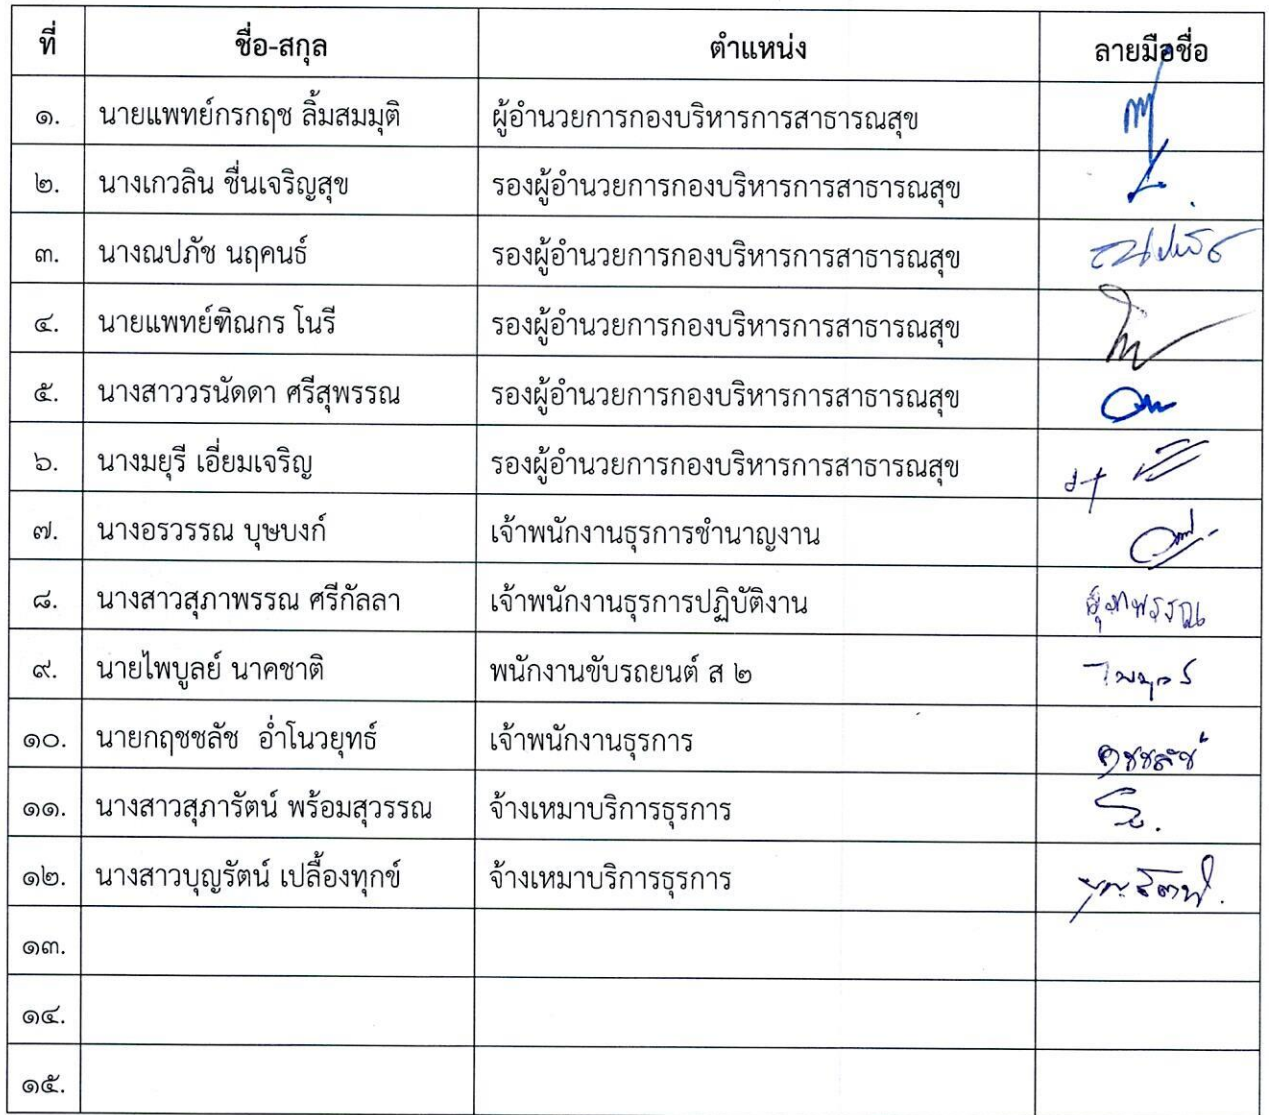 ที่ ชื่อ-สกุล ตำแหน่ง ลายมือชื่อ
๑. นายแพทย์กรกฤช ลิ้มสมมุติ ผู้อำนวยการกองบริหารการสาธารณสุข
๒. นางเกวลิน ชื่นเจริญสุข รองผู้อำนวยการกองบริหารการสาธารณสุข
๓. นางณปภัช นฤคนธ์ รองผู้อำนวยการกองบริหารการสาธารณสุข
๔. นายแพทย์ทิณกร โนรี รองผู้อำนวยการกองบริหารการสาธารณสุข
๕. นางสาววรนัดดา ศรีสุพรรณ รองผู้อำนวยการกองบริหารการสาธารณสุข
๖. นางมยุรี เอี่ยมเจริญ รองผู้อำนวยการกองบริหารการสาธารณสุข
๗. นางอรวรรณ บุษบงก์ เจ้าพนักงานธุรการชำนาญงาน
๘. นางสาวสุภาพรรณ ศรีกัลลา เจ้าพนักงานธุรการปฏิบัติงาน สุภาพรรณ
๙. นายไพบูลย์ นาคชาติ พนักงานขับรถยนต์ ส ๒ ไพบูลย์
๑๐. นายกฤชชลัช อ่ำโนวยุทธ์ เจ้าพนักงานธุรการ
๑๑. นางสาวสุภารัตน์ พร้อมสุวรรณ จ้างเหมาบริการธุรการ
๑๒. นางสาวบุญรัตน์ เปลื้องทุกข์ จ้างเหมาบริการธุรการ บุญรัตน์
๑๓.
๑๔.
๑๕.